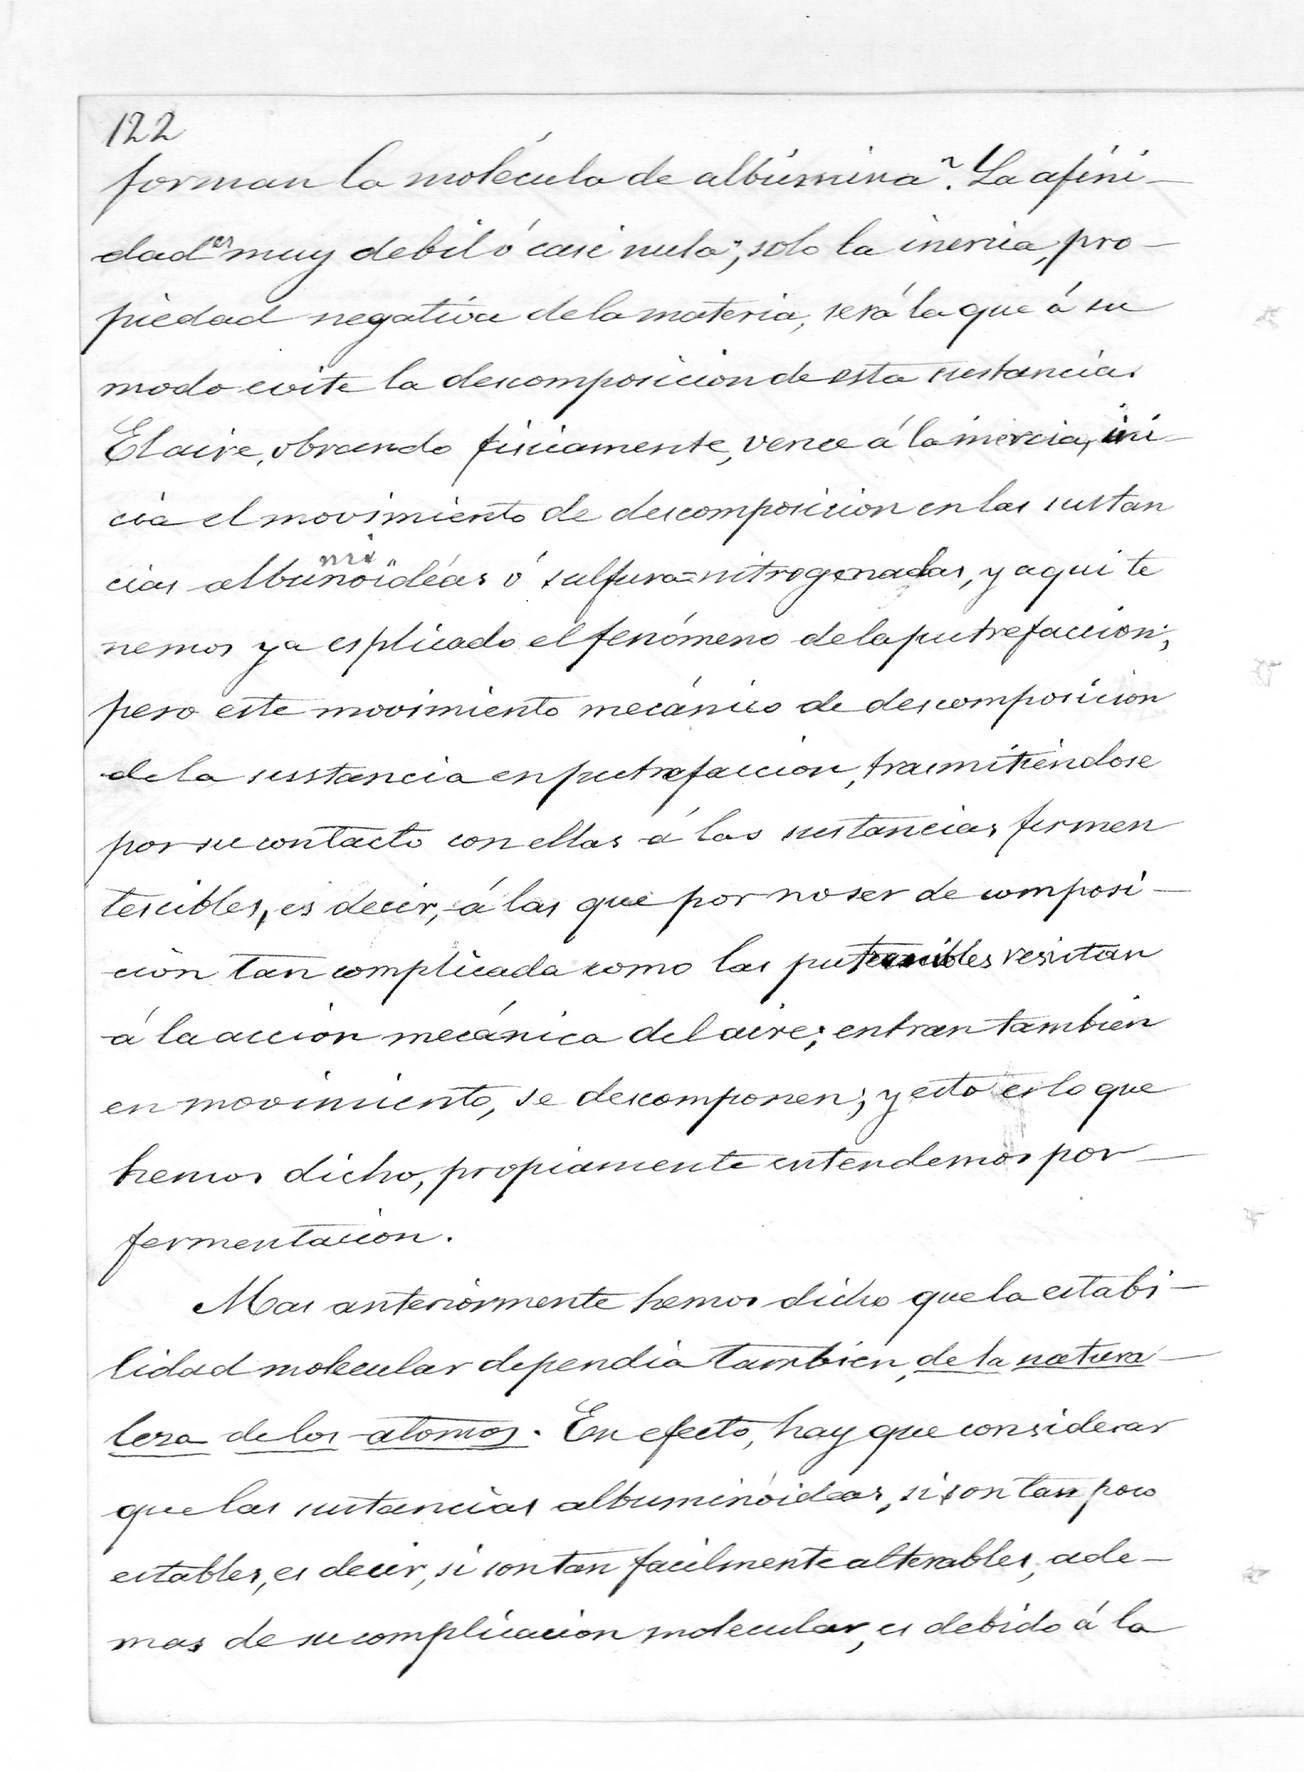 122
forman la molécula de albúmina? La afini-
dad es muy debil ó casi nula; solo la inercia, pro-
piedad negativa de la materia, será la que á su
modo evite la descomposicion de esta sustancia.
El aire, obrando fisicamente, vence á la inercia, ini-
cia el movimiento de descomposicion en las sustan
cias albuminoïdéas ó sulfura=nitrogenadas, y aqui te
nemos ya esplicado el fenómeno de la putrefaccion;
pero este movimiento mecánico de descomposicion
de la sustancia en putrefaccion, trasmitiéndose
por su contacto con ellas á las sustancias fermen
tescibles, es decir, á las que por no ser de composi-
cion tan complicada como las putrescibles resistan
á la accion mecánica del aire; entran tambien
en movimiento, se descomponen; y esto es lo que
hemos dicho, propiamente entendemos por
fermentacion.
Mas anteriormente hemos dicho que la estabi-
lidad molecular dependia tambien, de la natura-
leza de los atomos. En efecto, hay que considerar
que las sustancias albuminóideas, si son tan poco
estables, es decir, si son tan facilmente alterables, ade-
mas de su complicacion molecular, es debido á la